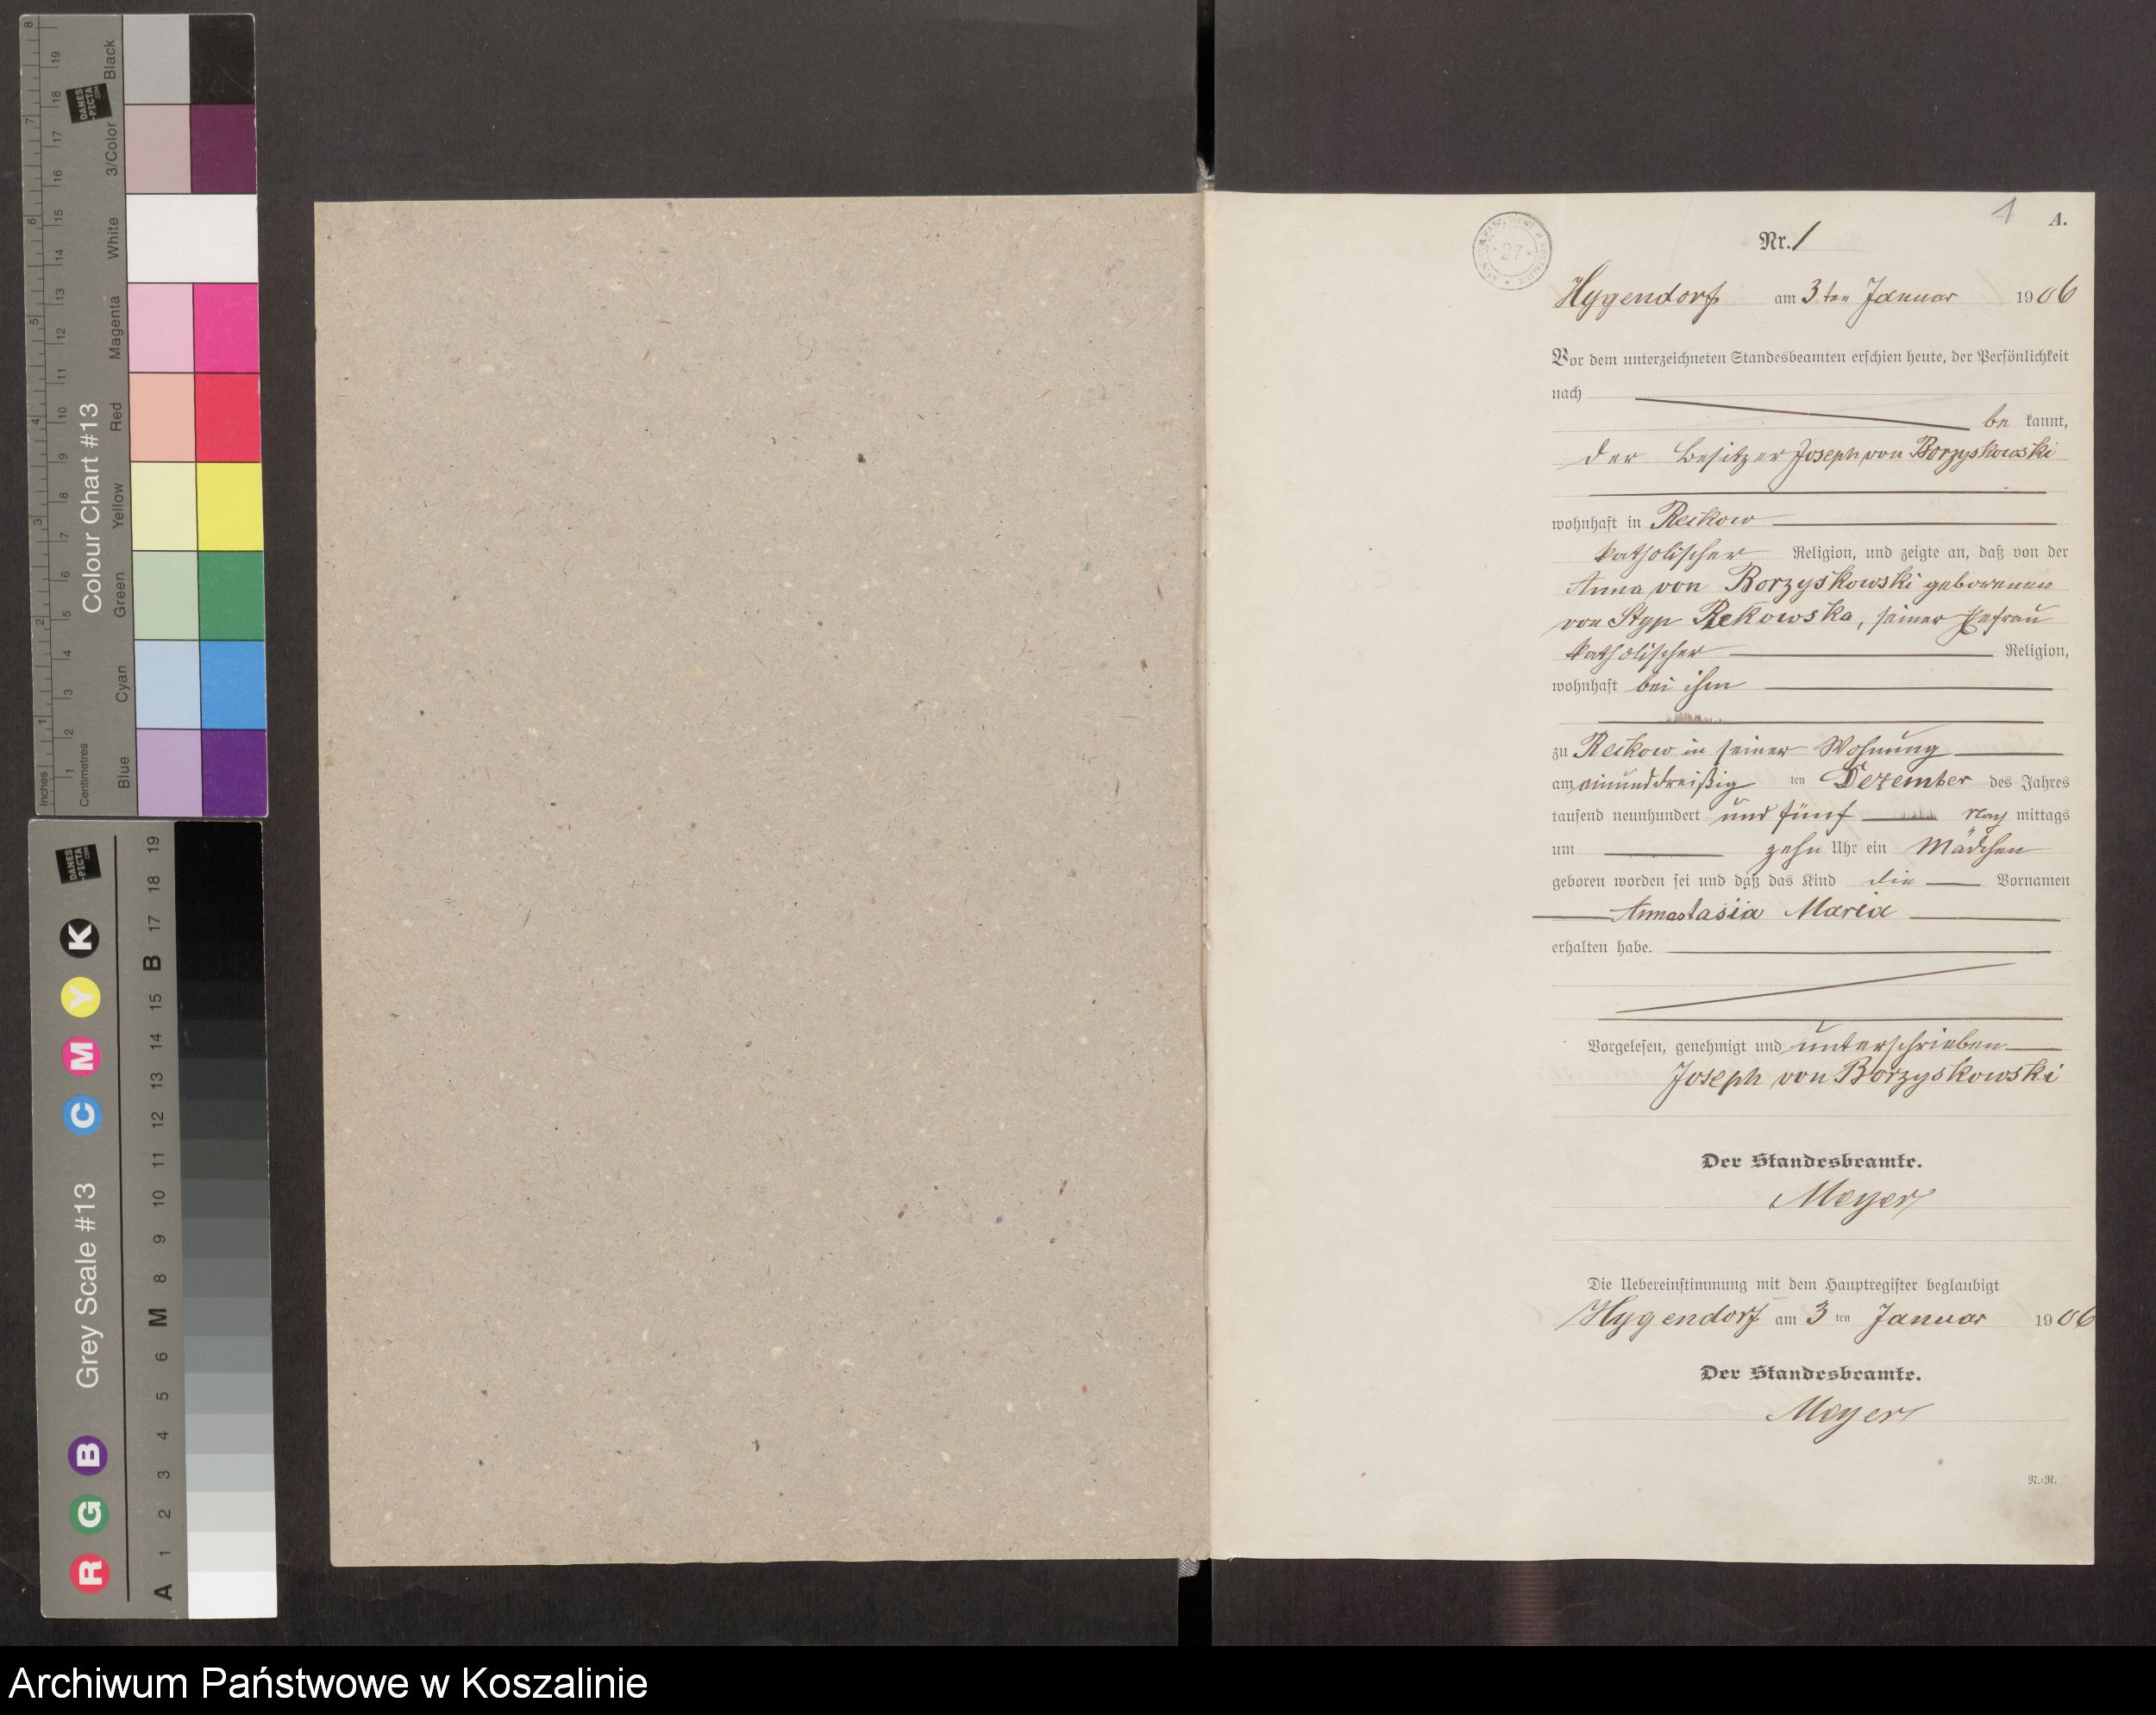 8
Black
3/Color
White
Magenta
Red
Yellow
Green
Cyan
Blue
Colour Chart #13
Inches
Centimetres
1 2 3 4 5 6 7 8 9 10 11 12 13 14 15 16 17 18 19
DANES
-PICTA
.COM
Grey Scale #13
R G B C M Y K
A 1 2 3 4 5 6 M 8 9 10 11 12 13 14 15 B 17 18 19
27
1 A.
Nr. 1
Hygendorf am 3ten Januar 1906
Vor dem unterzeichneten Standesbeamten erschien heute, der Persönlichkeit
nach
be kannt,
der Besitzer Joseph von Borzyskowski
wohnhaft in Reckow
katholischer Religion, und zeigte an, daß von der
Anna von Borzyskowski geborenen
von Styp Rekowska, seiner Ehefrau
katholischer Religion,
wohnhaft bei ihm
zu Reckow in seiner Wohnung
am einunddreißig ten Dezember des Jahres
tausend neunhundert und fünf nach mittags
um zehn Uhr ein Mädchen
geboren worden sei und daß das Kind die Vornamen
Annastasia Maria
erhalten habe.
Vorgelesen, genehmigt und unterschrieben
Joseph von Borzyskowski
Der Standesbeamte.
Meyer
Die Uebereinstimmung mit dem Hauptregister beglaubigt
Hygendorf am 3 ten Januar 1906
Der Standesbeamte.
Meyer
R.:R.
Archiwum Państwowe w Koszalinie